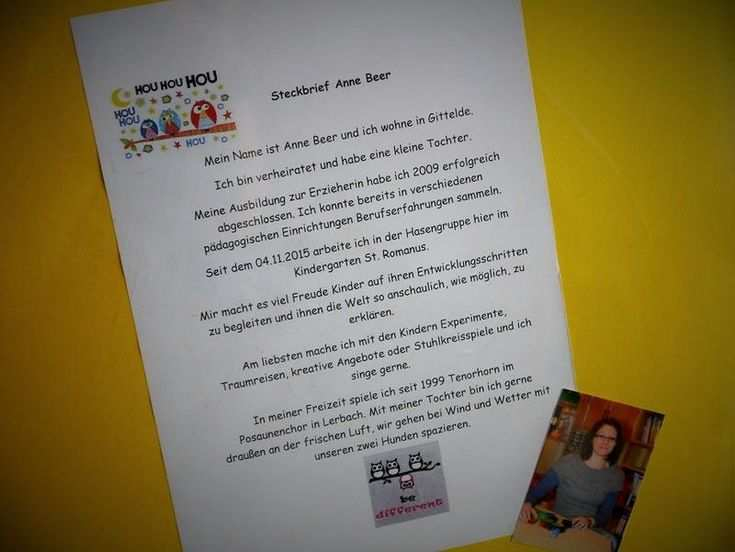 HOU HOU HOU
HOU
HOU
HOU
Steckbrief Anne Beer
Mein Name ist Anne Beer und ich wohne in Gittelde.
Ich bin verheiratet und habe eine kleine Tochter.
Meine Ausbildung zur Erzieherin habe ich 2009 erfolgreich
abgeschlossen. Ich konnte bereits in verschiedenen
pädagogischen Einrichtungen Berufserfahrungen sammeln.
Seit dem 04.11.2015 arbeite ich in der Hasengruppe hier im
Kindergarten St. Romanus.
Mir macht es viel Freude Kinder auf ihren Entwicklungsschritten
zu begleiten und ihnen die Welt so anschaulich, wie möglich, zu
erklären.
Am liebsten mache ich mit den Kindern Experimente,
Traumreisen, kreative Angebote oder Stuhlkreisspiele und ich
singe gerne.
In meiner Freizeit spiele ich seit 1999 Tenorhorn im
Posaunenchor in Lerbach. Mit meiner Tochter bin ich gerne
draußen an der frischen Luft, wir gehen bei Wind und Wetter mit
unseren zwei Hunden spazieren.
be
different